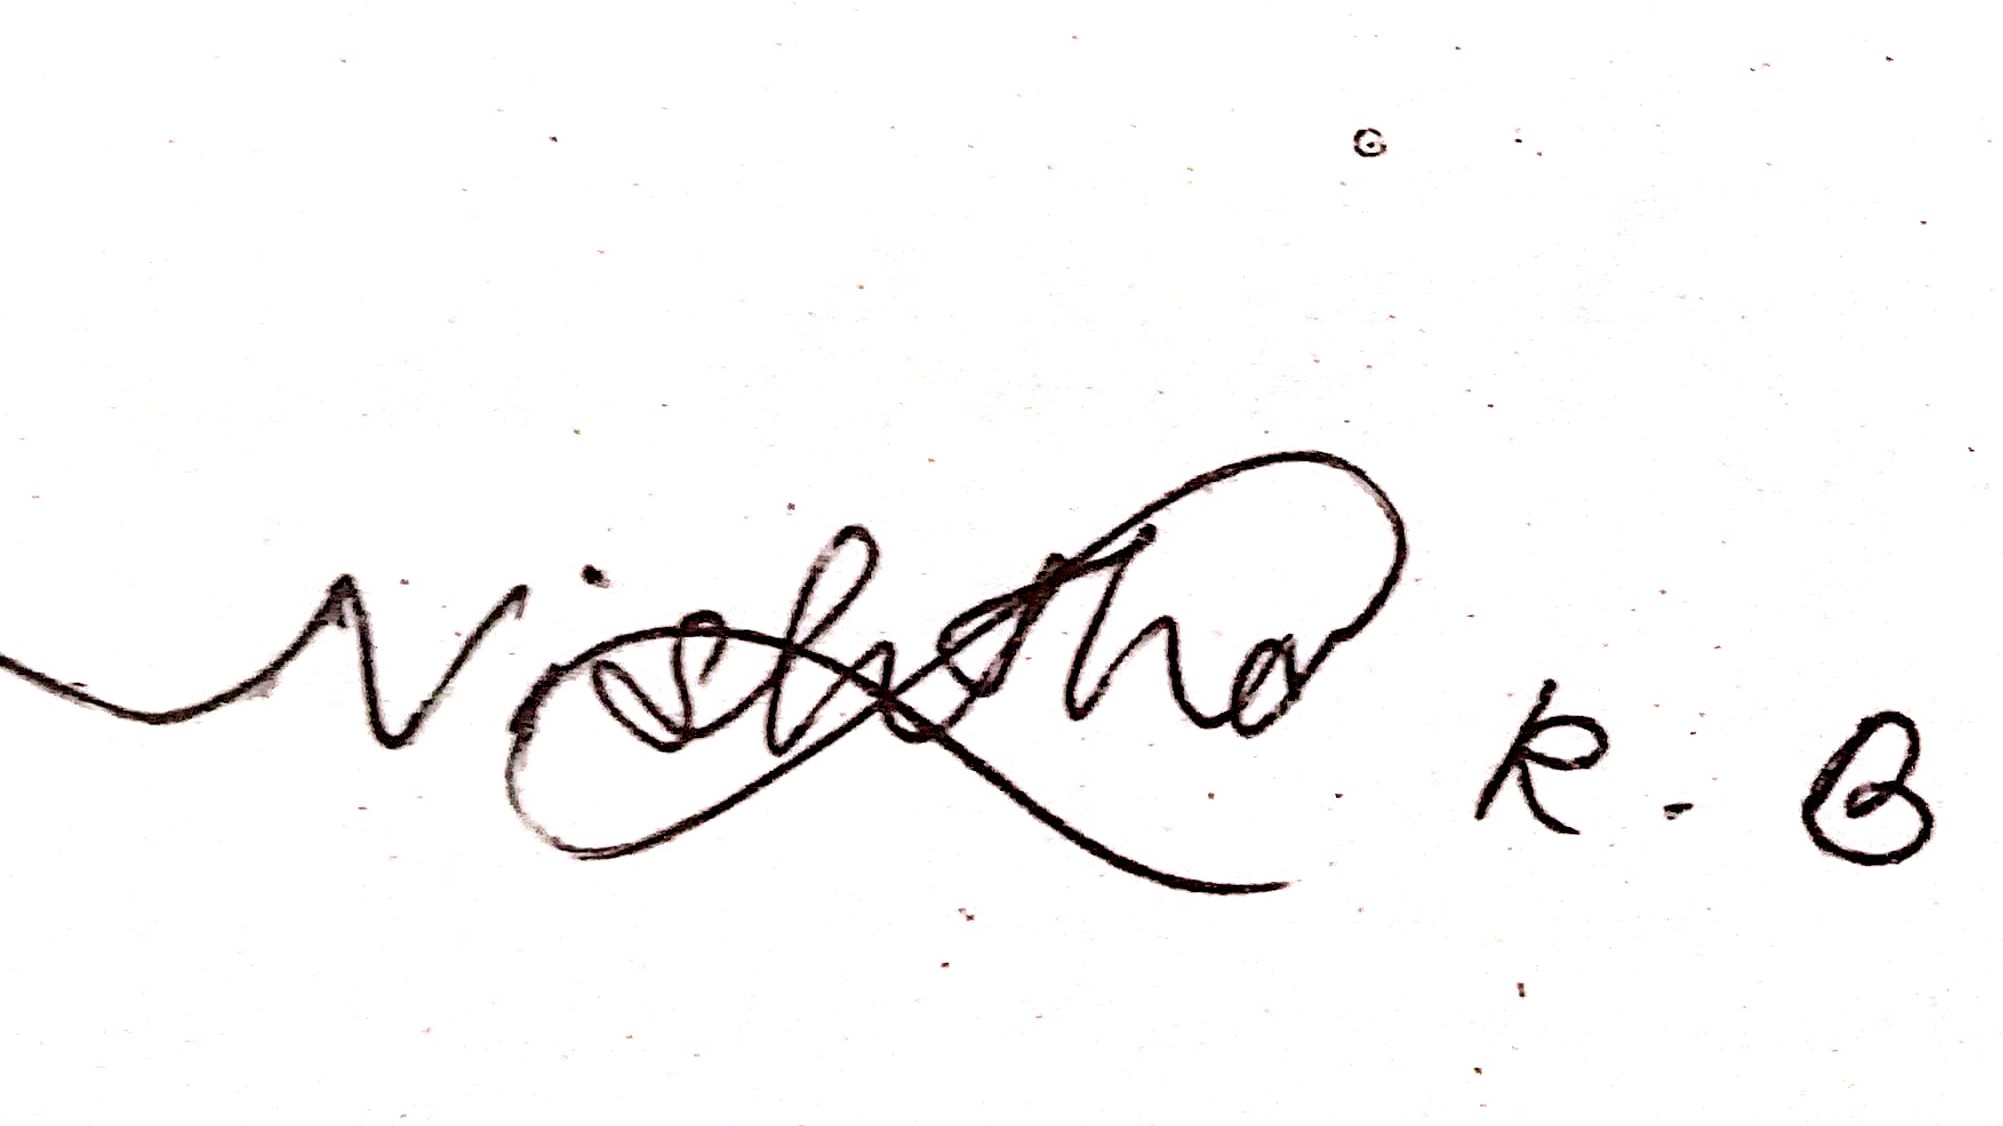 Nishatha R. B